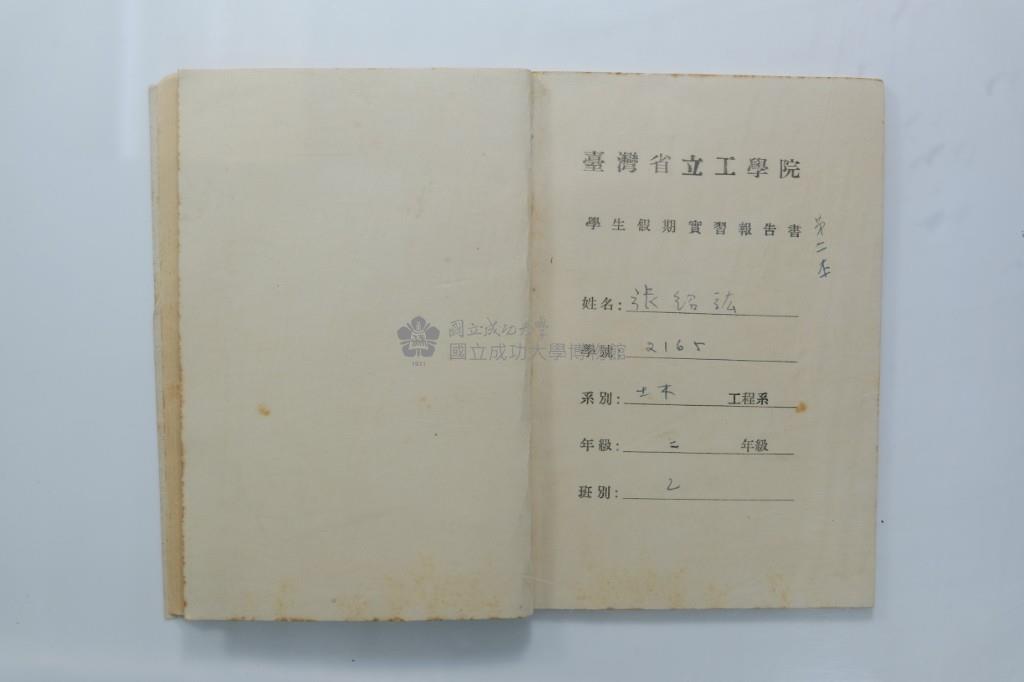 臺灣省立工學院
學生假期實習報告書
第二本
姓名：張紹竑
學號：2165
系別：土木 工程系
年級：二 年級
班別：乙
國立成功大學
國立成功大學博物館
1931